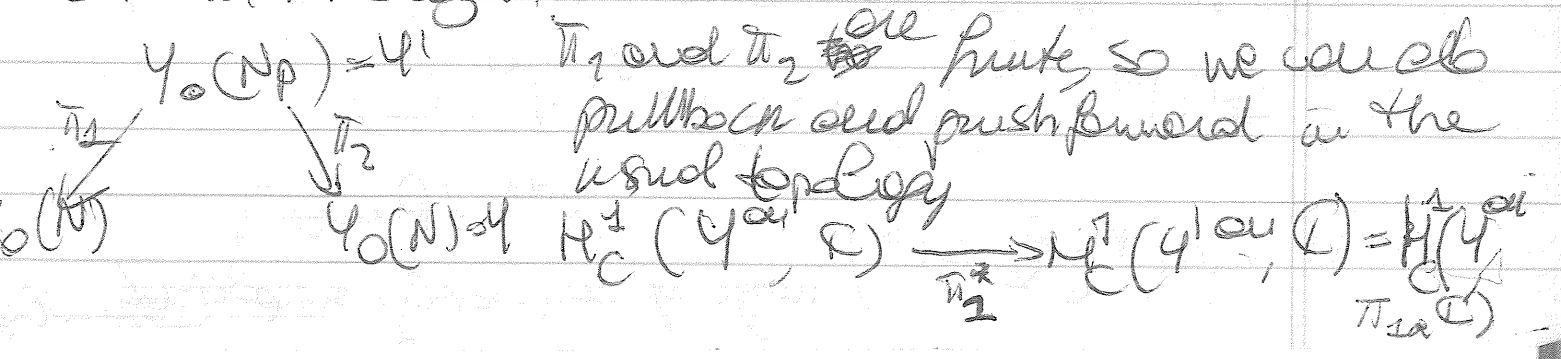 Y₀(Np) = Y' π₁ and π₂ are finite, so we can do
π₁ π₂ pullback and pushforward in the
usual topology
₀(N) Y₀(N) = Y H¹_C (Y^an, ℂ) ⟶ H¹_C (Y'^an, ℂ) = H¹_C (Y^an,
π₁^* π₁⁎ ℂ)